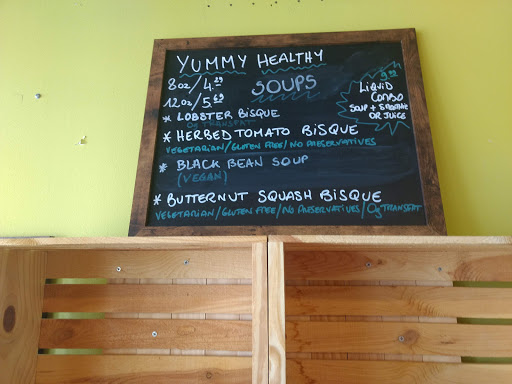 YUMMY HEALTHY
SOUPS
8oz/4.29
12oz/5.69
* LOBSTER BISQUE
0g TRANSFAT
* HERBED TOMATO BISQUE
VEGETARIAN/GLUTEN FREE/NO PRESERVATIVES
* BLACK BEAN SOUP
(VEGAN)
* BUTTERNUT SQUASH BISQUE
VEGETARIAN/GLUTEN FREE/NO PRESERVATIVES/0g TRANSFAT
LIQUID
COMBO
SOUP + SMOOTHIE
OR JUICE